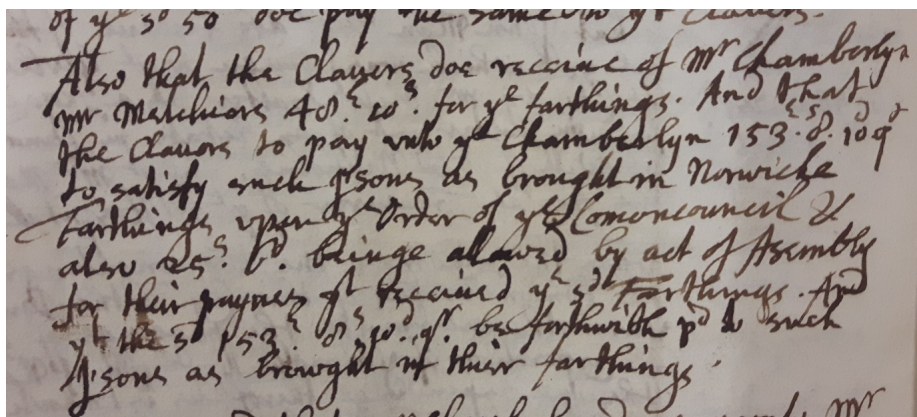 of ye sd 50 doe pay the same to ye Clavers.
Also that the Clavers doe receive of Mr Chamberlyn
Mr Melchiors 48£ 10s. for ye farthings. And that
the Clavors to pay unto ye Chamberlyn 153£. 8s. 10d q
to satisfy such psons as brought in Norwiche
Farthings upon ye Order of ye Comoncouncil &
also 25s. beinge allowed by act of Asembly
for their paynes yt received ye sd Farthings. And
yt the sd 153£ 8s 10d. qr. be forthwith pd to such
psons as browght in their farthings
Mr